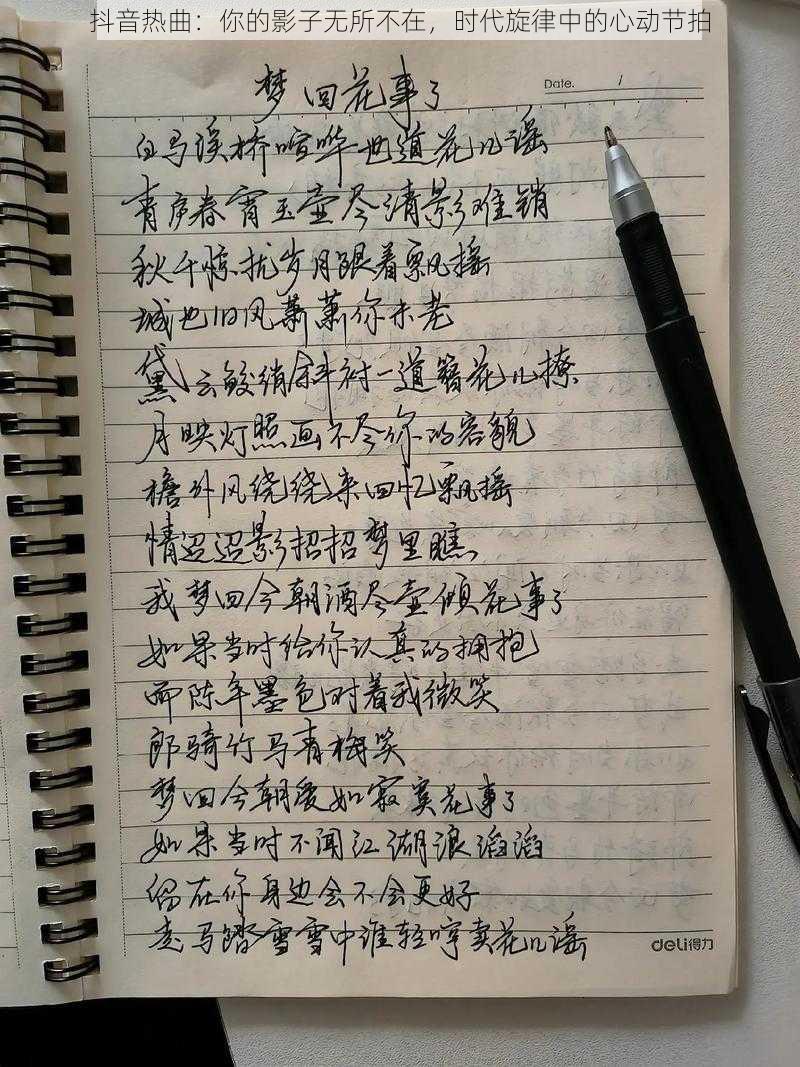 抖音热曲：你的影子无所不在，时代旋律中的心动节拍
Date. /
梦回花事了
白马溪桥喧哗一曲道花儿谣
青庐春宵玉壶尽清影难销
秋千惊扰岁月跟着飘摇
城也旧风萧萧你未老
黛云鲛绡斜衬一道簪花儿撩
月映灯照画不尽你的容貌
檐外风绕绕来回忆飘摇
情迢迢影招招梦里瞧
我梦回今朝酒尽壶倾花事了
如果当时给你认真的拥抱
而陈年墨色对着我微笑
郎骑竹马青梅笑
梦回今朝爱如寂寞花事了
如果当时不闻江湖浪滔滔
留在你身边会不会更好
走马踏雪雪中谁轻哼卖花儿谣
deli得力